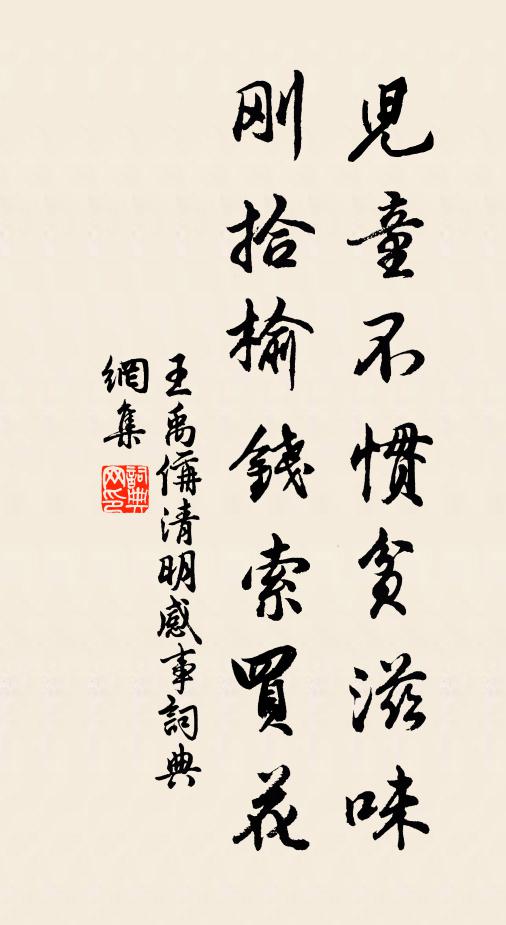 兒童不慣貧滋味
刚拾榆錢索買花
王禹偁清明感事詞典
網集
詞典
网印